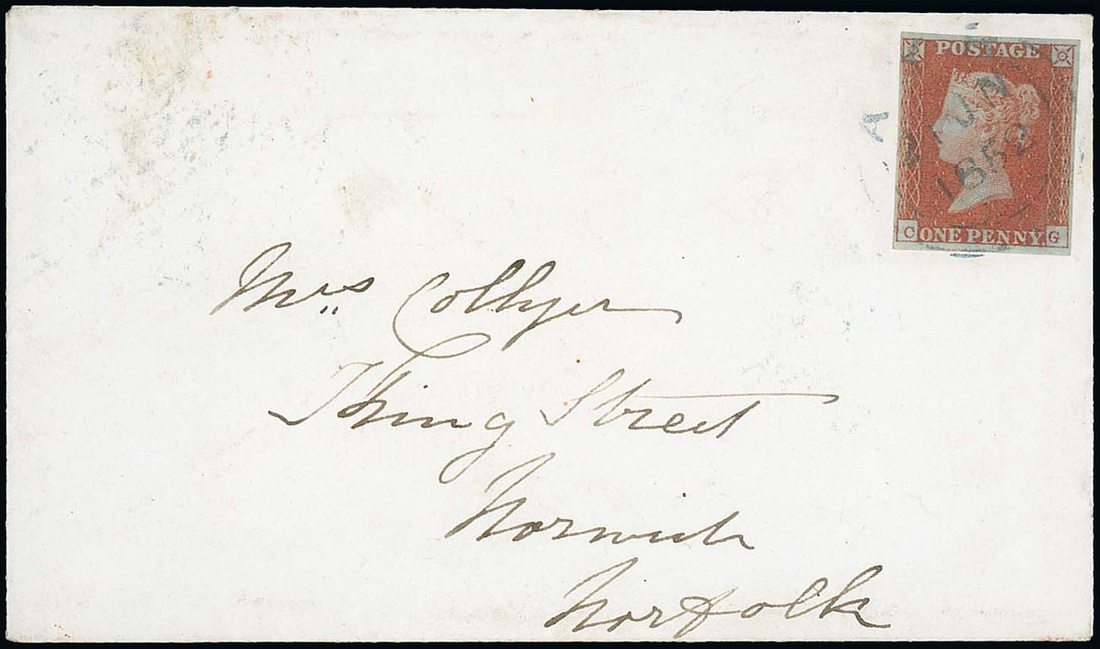 POSTAGE
A
JUN
1852
C ONE PENNY. G
Mrs Collyer
King Street
Norwich
Norfolk